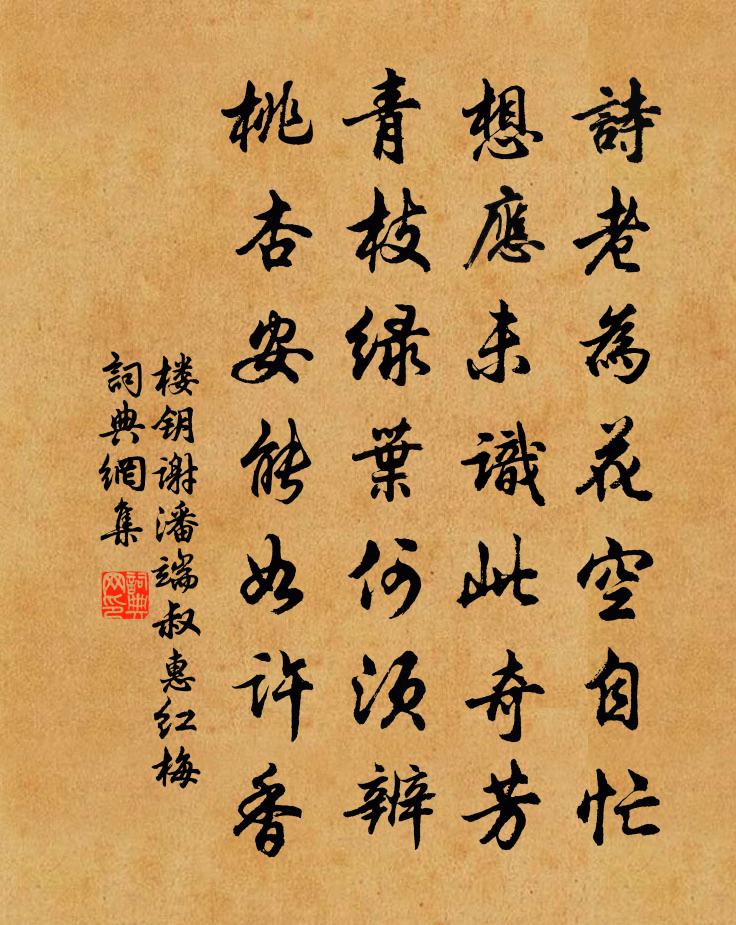 詩老為花空自忙
想應未識此奇芳
青枝绿葉何須辨
桃杏安能如許香
楼钥谢潘端叔惠红梅
詞典網集
詞典網印